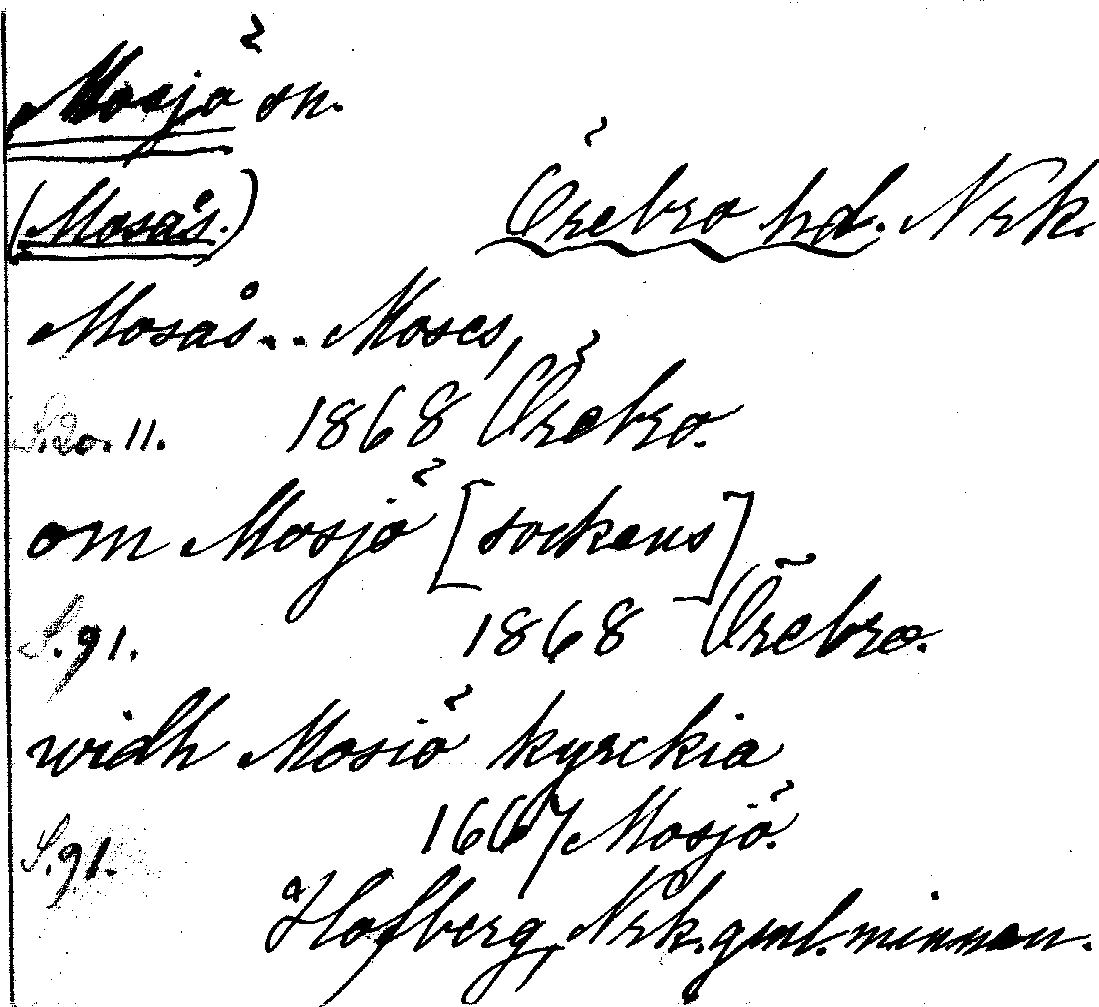 Mosjö sn.
(Mosås.) Örebro hd. Nrk.
Mosås.. Moses,
S. 20. 11. 1868 Örebro.
om Mosjö [sockens]
S. 91. 1868 Örebro.
widh Mosiö kyrckia
S. 91. 1667 Mosjö.
Hofberg, Nrk. gml. minnen.